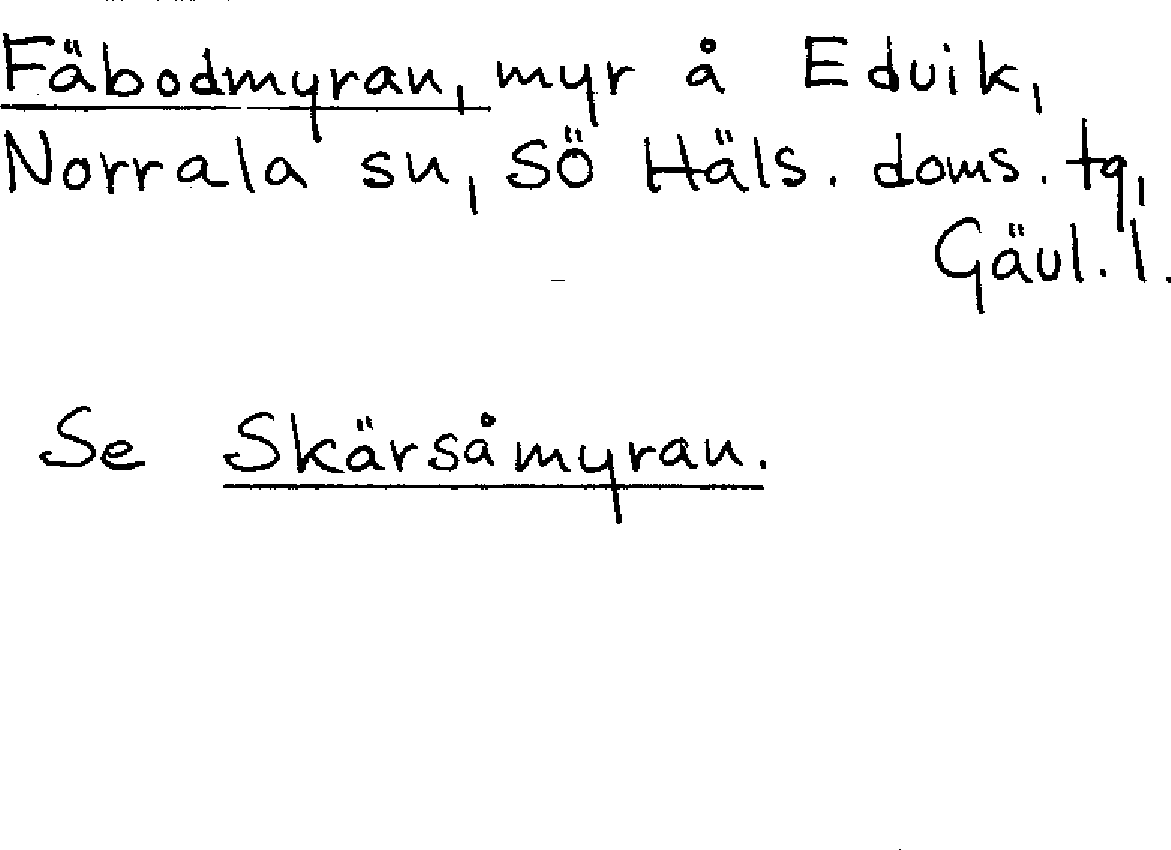 Fäbodmyran, myr å Edvik,
Norrala sn, SÖ Häls. doms. tg,
Gävl. l.
Se Skärsåmyran.